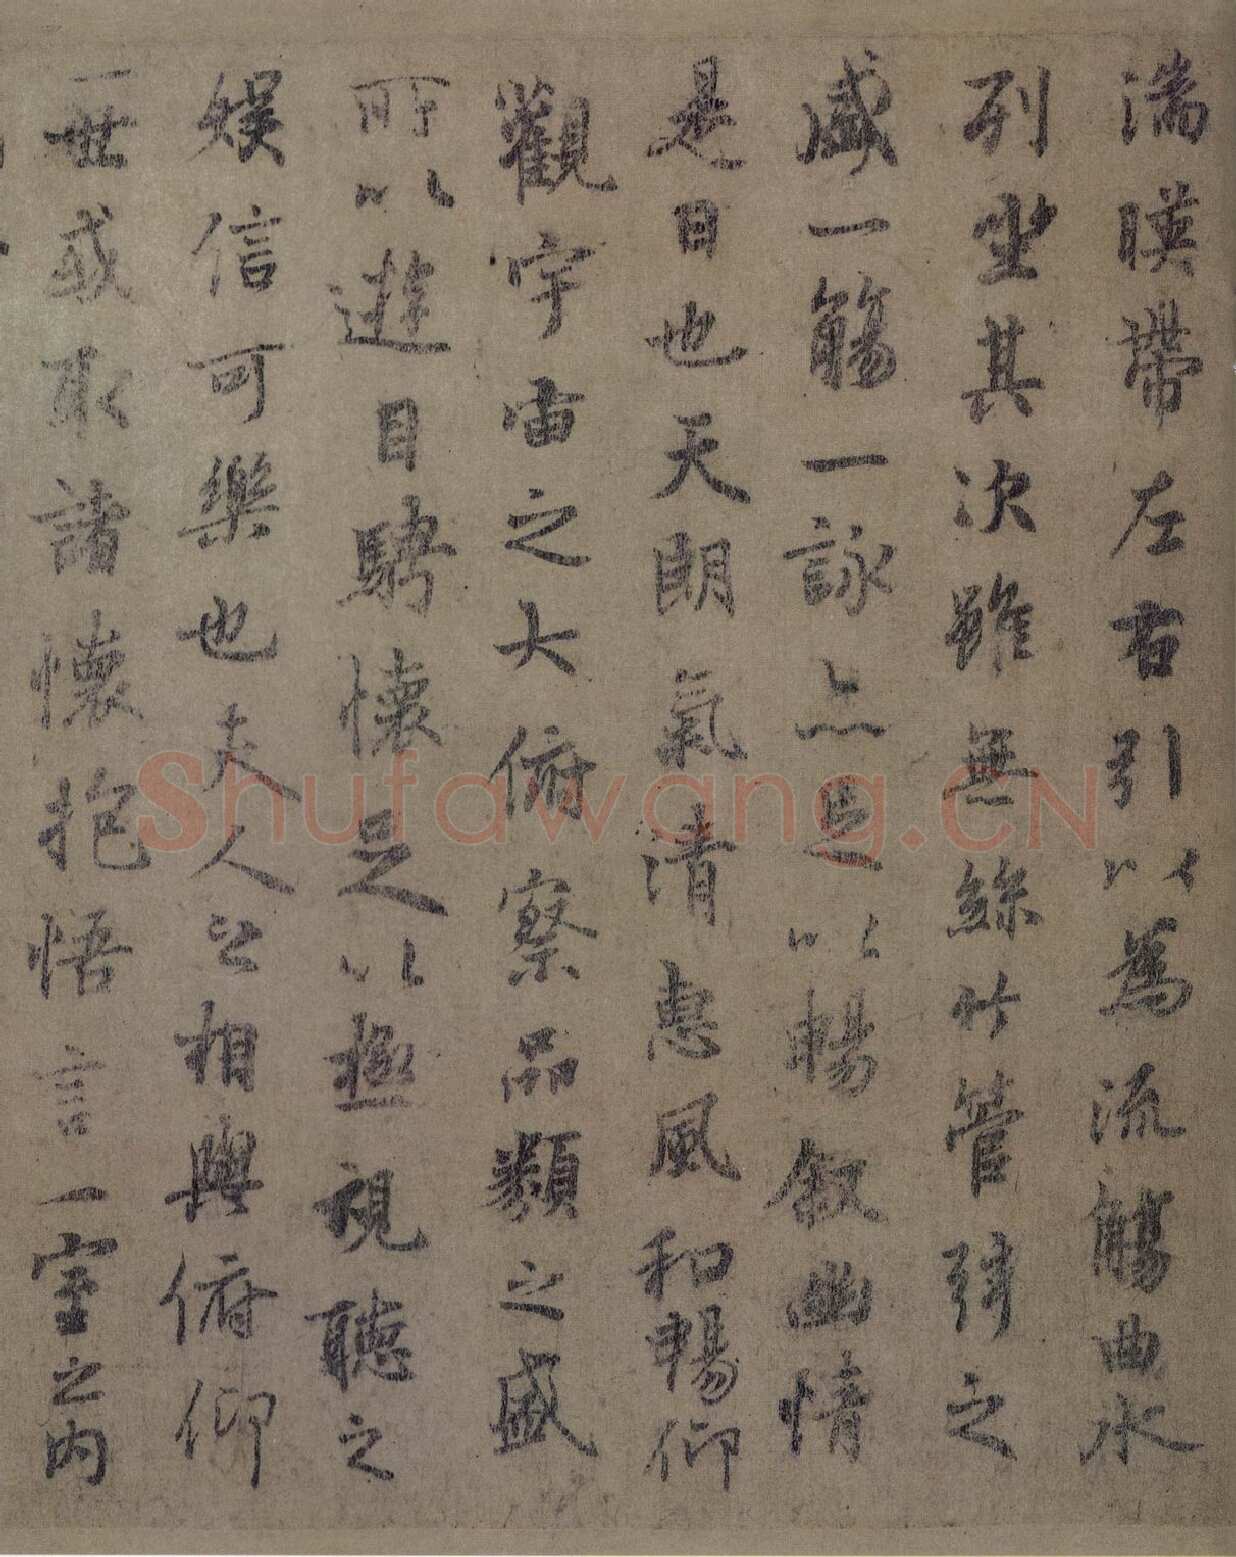 湍暎帶左右引以為流觴曲水
列坐其次雖無絲竹管弦之
盛一觴一詠亦足以暢敘幽情
是日也天朗氣清惠風和暢仰
觀宇宙之大俯察品類之盛
所以遊目騁懷足以極視聽之
娛信可樂也夫人之相與俯仰
一世或取諸懷抱悟言一室之內
Shufawang.CN